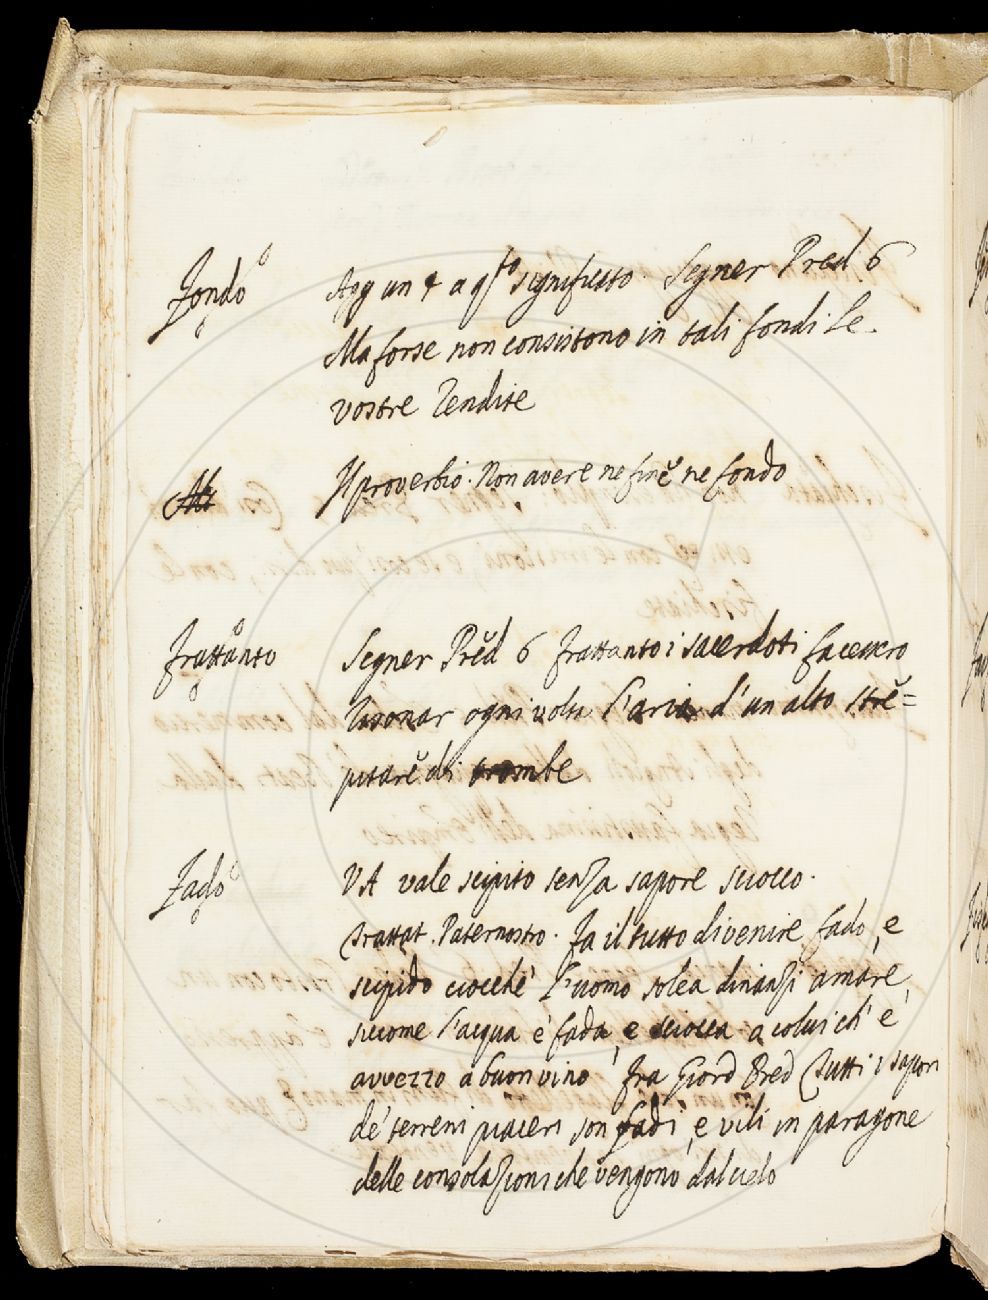 Fondo Agg un § a q.sto significato. Segner Pred 6
Ma forse non consistono in tali fondi le
vostre rendite
Il proverbio. Non avere ne fine ne fondo
Frattanto Segner Pred 6 frattanto i sacerdoti facessero
risonar ogni volta l'aria d'un alto stre=
pitare di trombe
Fado VA vale scipito senza sapore sciocco.
trattat. Paternostro. Fa il tutto divenire fado, e
scipido ciocchè l'uomo solea dinanzi amare,
siccome l'acqua è fada, e sciocca a colui ch'è
avvezzo a buon vino, fra Giord Pred Tutti i sapori
de' terreni piaceri son fadi, e vili in paragone
delle consolazioni che vengono dal cielo